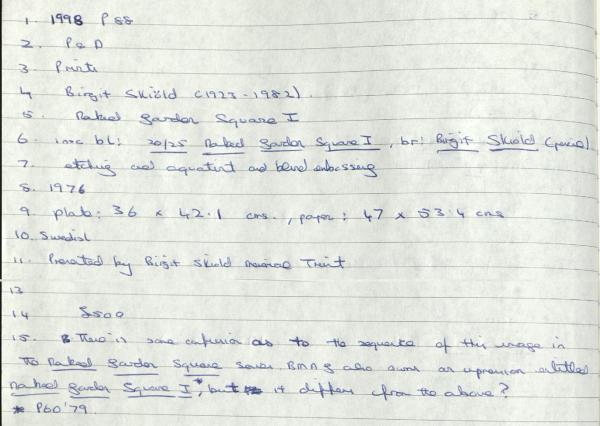 1. 1998 P88
2. P&D
3. Prints
4. Birgit Skiöld (1923-1982).
5. Raked Garden Square I
6. insc bl: 20/25 Raked Garden Square I, br: Birgit Skiöld (pencil)
7. etching and aquatint and blind embossing
8. 1976
9. plate: 36 x 42.1 cms., paper: 47 x 53.4 cms
10. Swedish
11. Presented by Birgit Skiöld Memorial Trust
13
14 £500
15. There is some confusion as to the sequence of this image in
the Raked Garden Square series BMAG also owns an impression entitled
Raked Garden Square I*, but it differs from the above?
* P60'79.